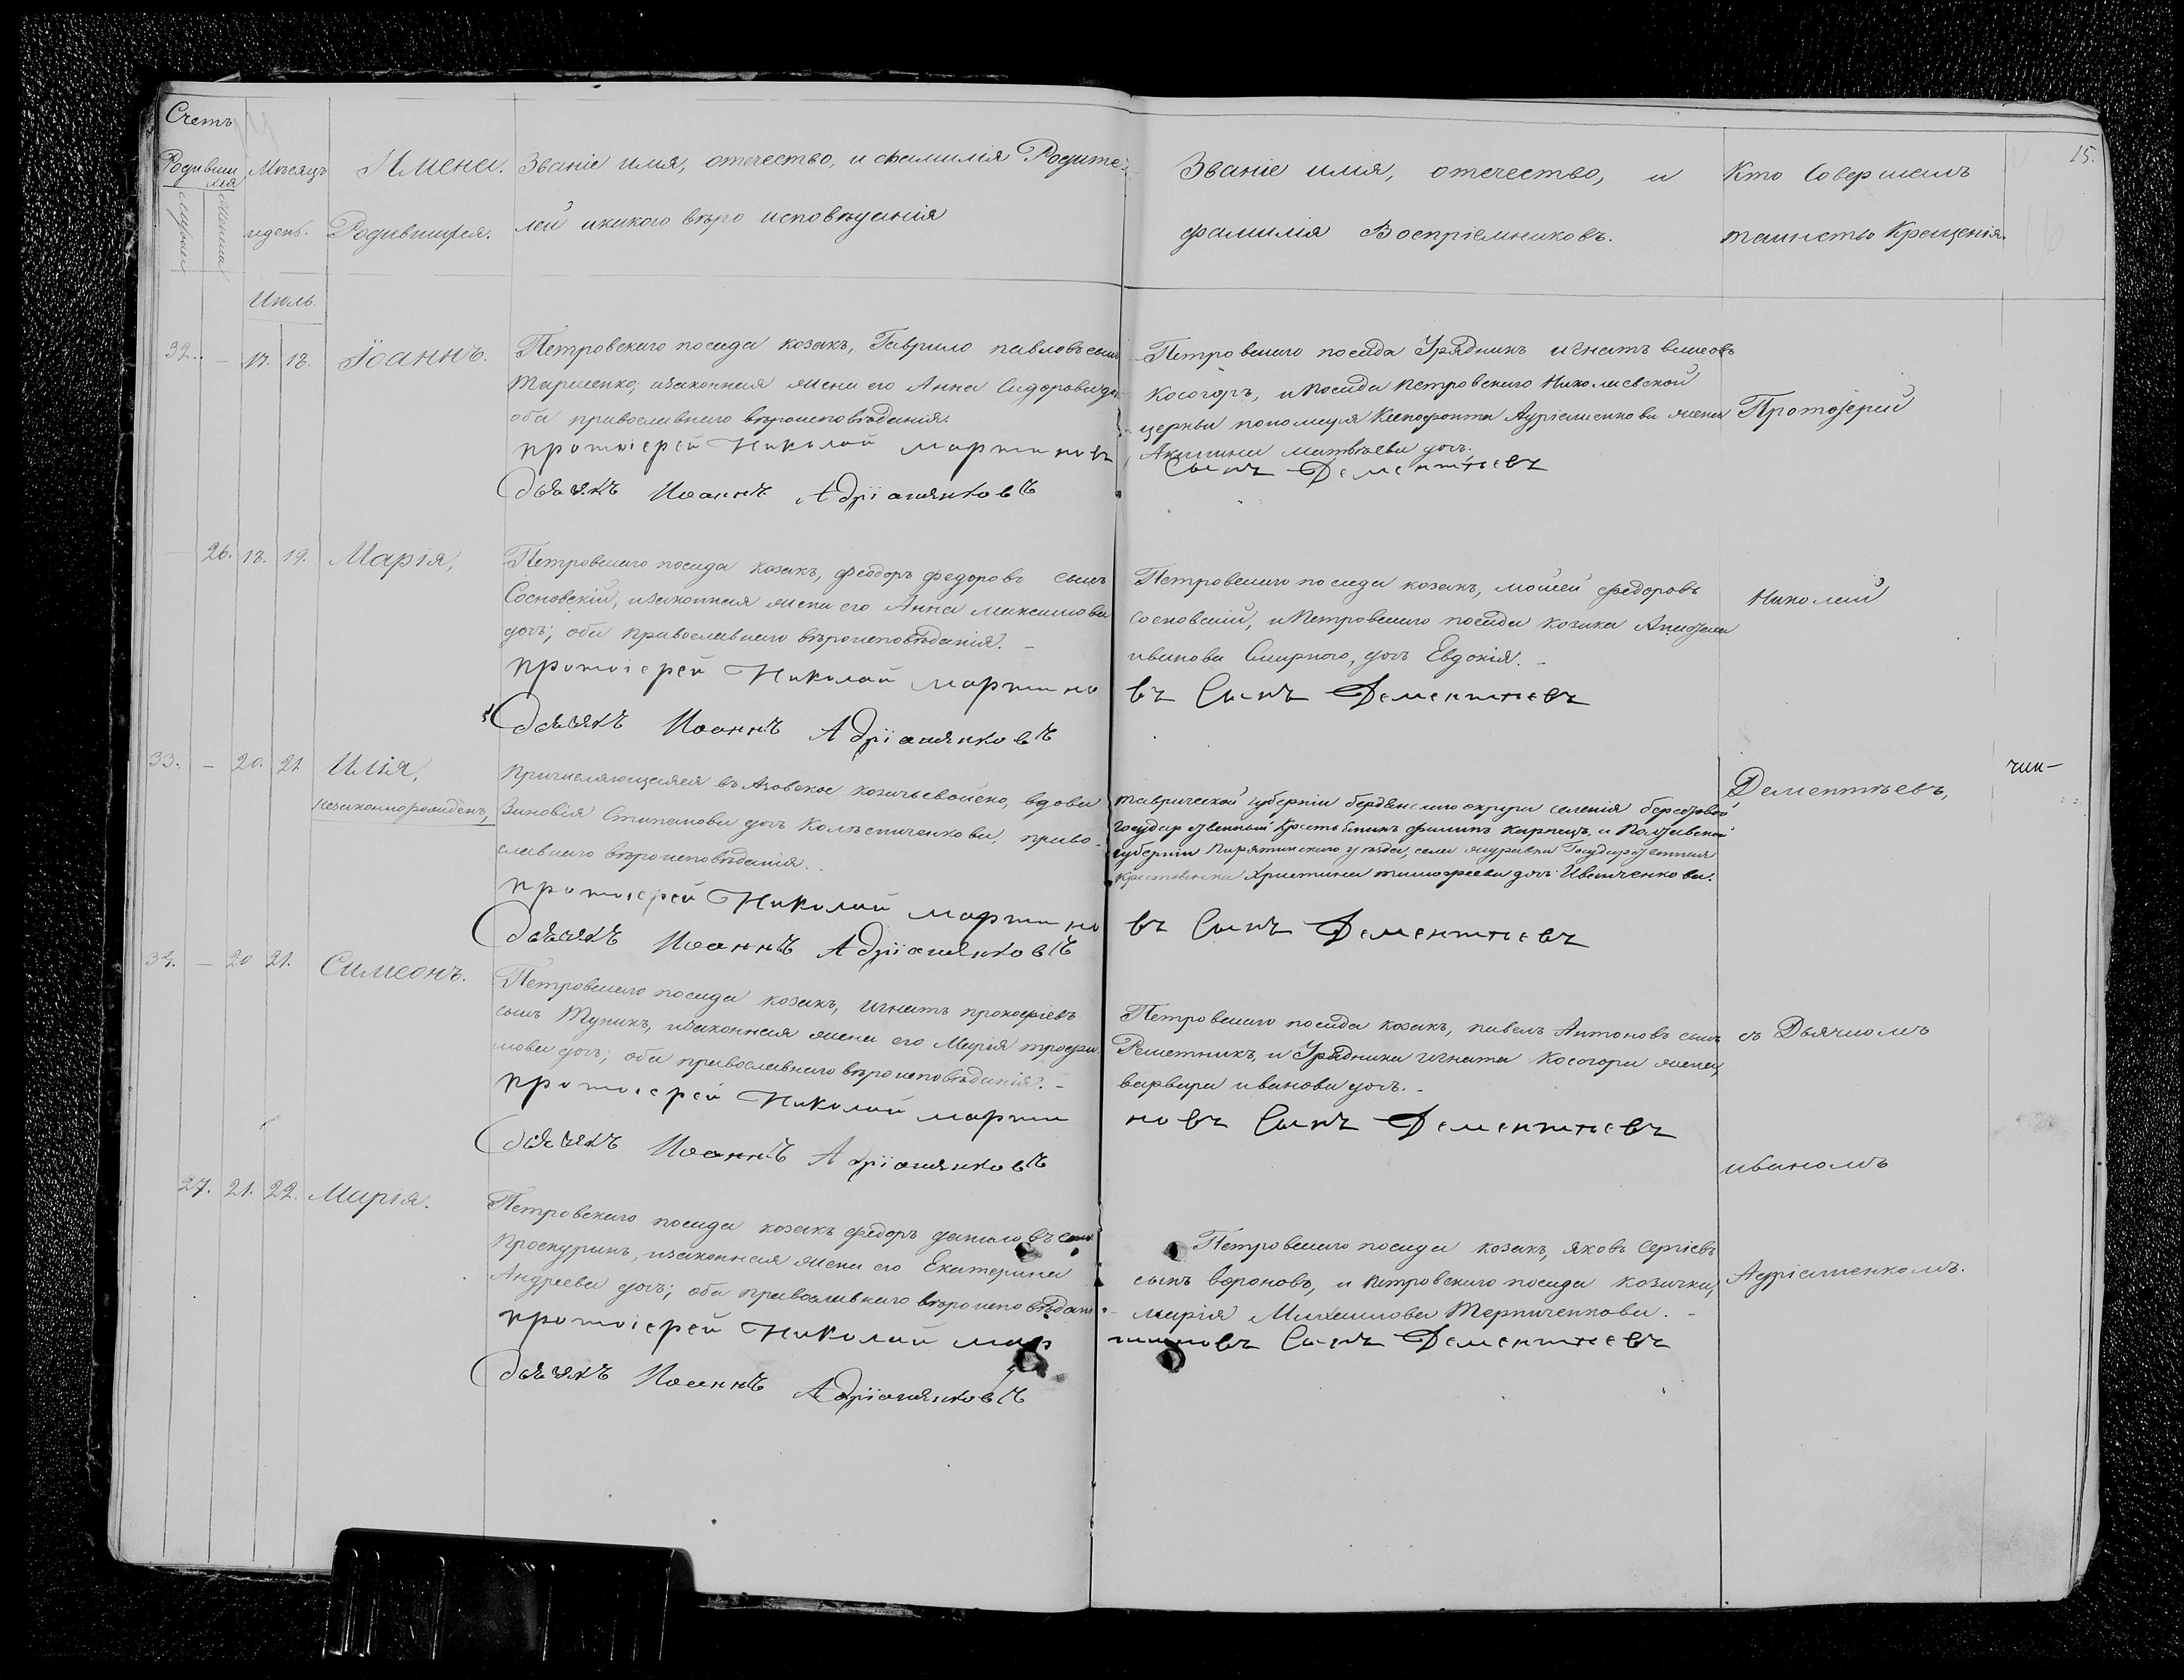 15.
Счетъ
Родивши
мся
Мѣсяцъ
Имена.
Званіе имя, отечество, и фамилія Родите-
Званіе имя, отечество, и
Кто Совершалъ
идень.
Родившихся.
лей икакого вѣро исповѣданія
фамилія Воспріемниковъ.
таинство Крещенія.
Июль.
32. — 17. 18. Іоаннъ.
Петровскаго посада козакъ, Гаврило павловъ сынъ
изаконная жена его Анна Сидорова
оба православнаго вѣроисповѣданія.
протоіерей Николай мартиновъ
дьячкъ Иоаннъ Адріаненковъ
Петровскаго посада Урядникъ игнатъ
Косогоръ, и Посада Петровскаго Николаевской
церкви пономаря Ксенофонта Адріаненкова жена
Акилина матвѣева дочь.
Сынъ Дементіевъ
Протоіерей
— 26. 18. 19. Марія,
Петровскаго посада козакъ, феодоръ федоровъ сынъ
Сосновскій, изаконная жена его Анна максимова
дочь; оба православнаго вѣроисповѣданія. —
протоіерей Николай мартино
дьячкъ Иоаннъ Адріаненковъ
Петровскаго посада козакъ, моисей федоровъ
сосновскій, и Петровскаго посада козака
иванова Смирного, дочь Евдокія. —
въ Сынъ Дементіевъ
Николай
33. — 20. 21 Илія,
незаконнорожденъ,
Причисляющаяся въ Азовское козачьевойско, вдова
Зиновія Стипанова дочь Колѣсниченкова, право-
славнаго вѣроисповѣданія.
протоіерей Николай мартино
дьячкъ Иоаннъ Адріаненковъ
таврической губерніи бердянскаго округа селенія берестовой
государственный Крестьянинъ филипъ карпецъ, и Полтавской
губерніи Пирятинскаго уѣзда, села Государственная
Крестьянка Христина тимофеева дочь Иванченкова.
въ Сынъ Дементіевъ
Дементьевъ,
чик-
34. — 20 21. Симеонъ.
Петровскаго посада козакъ, игнатъ прокофіевъ
сынъ Тупикъ, изаконная жена его Марія трофи-
мова дочь; оба православнаго вѣроисповѣданія. —
протоіерей Николай марти
дьячкъ Иоаннъ Адріаненковъ
Петровскаго посада козакъ, павелъ Антоновъ сынъ
Решетникъ, и Урядника игната Косогора жена,
варвара иванова дочь. —
новъ Сынъ Дементіевъ
съ Дьячкомъ
иваномъ
27. 21. 22. Марія.
Петровскаго посада козакъ федоръ даниловъ сынъ
Проскуринъ, изаконная жена его Екатерина
Андреева дочь; оба православнаго вѣроисповѣдан
протоіерей Николай мар
дьячкъ Иоаннъ Адріаненковъ
Петровскаго посада козакъ, яковъ Сергіевъ
сынъ вороновъ, и Петровскаго посада козачка,
марія Михаилова Терниченкова. —
тиновъ Сынъ Дементіевъ
Адріаненкомъ.